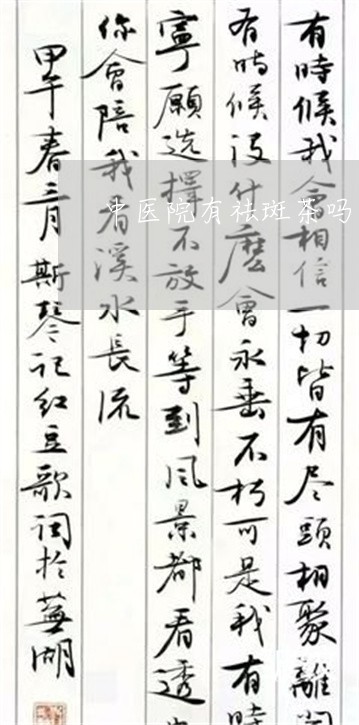 有時候我會相信一切皆有尽頭相聚離開
有時候没什麽會永垂不朽可是我有時
寧願选擇不放手等到風景都看透
你會陪我看溪水長流
甲午春三月斯琴记红豆歌词於蕪湖
中医院有祛斑茶吗